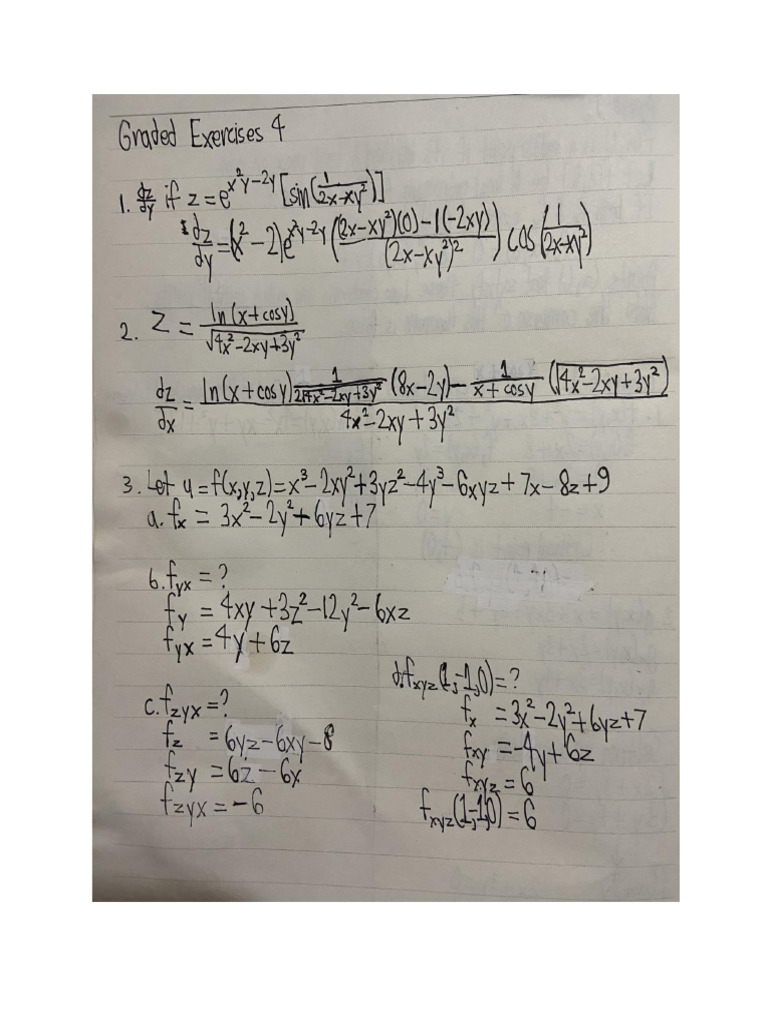 Graded Exercises 4
1. dz/dy if z = e^(x²y-2y) [sin(1/(2x-xy²))]
dz/dy = (x²-2)e^(x²y-2y) (((2x-xy²)(0)-1(-2xy))/(2x-xy²)²) cos(1/(2x-xy²))
2. z = ln(x+cosy)/√(4x²-2xy+3y²)
dz/dx = (ln(x+cosy) 1/(2√(4x²-2xy+3y²)) (8x-2y) - 1/(x+cosy) (√(4x²-2xy+3y²)))/(4x²-2xy+3y²)
3. Let u = f(x,y,z) = x³-2xy²+3yz²-4y³-6xyz+7x-8z+9
a. fx = 3x²-2y²+6yz+7
b. fyx = ?
fy = 4xy+3z²-12y²-6xz
fyx = 4y+6z
c. fzyx = ?
fz = 6yz-6xy-8
fzy = 6z-6x
fzyx = -6
d. fxyz(1,-1,0) = ?
fx = 3x²-2y²+6yz+7
fxy = -4y+6z
fxyz = 6
fxyz(1,-1,0) = 6